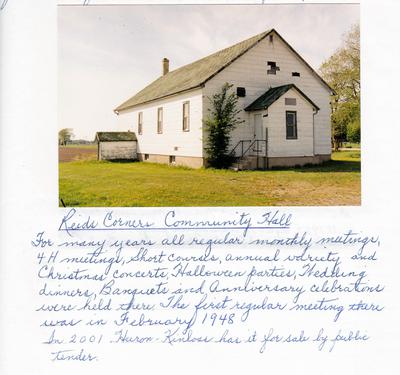 Reids Corners Community Hall
For many years all regular monthly meetings,
4H meetings, Short courses, annual variety and
Christmas concerts, Halloween parties, Wedding
dinners, Banquets and Anniversary celebrations
were held there. The first regular meeting there
was in February 1948
In 2001 Huron-Kinloss has it for sale by public
tender.